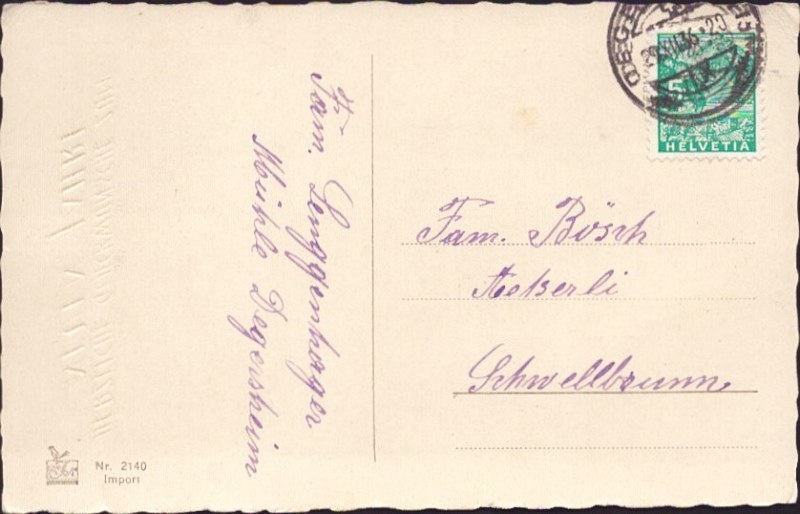 Fam. Lenggenhager
Mühle Degersheim
Fam. Bösch
Aekerli
Schwellbrunn
HELVETIA
5
Nr. 2140
Import